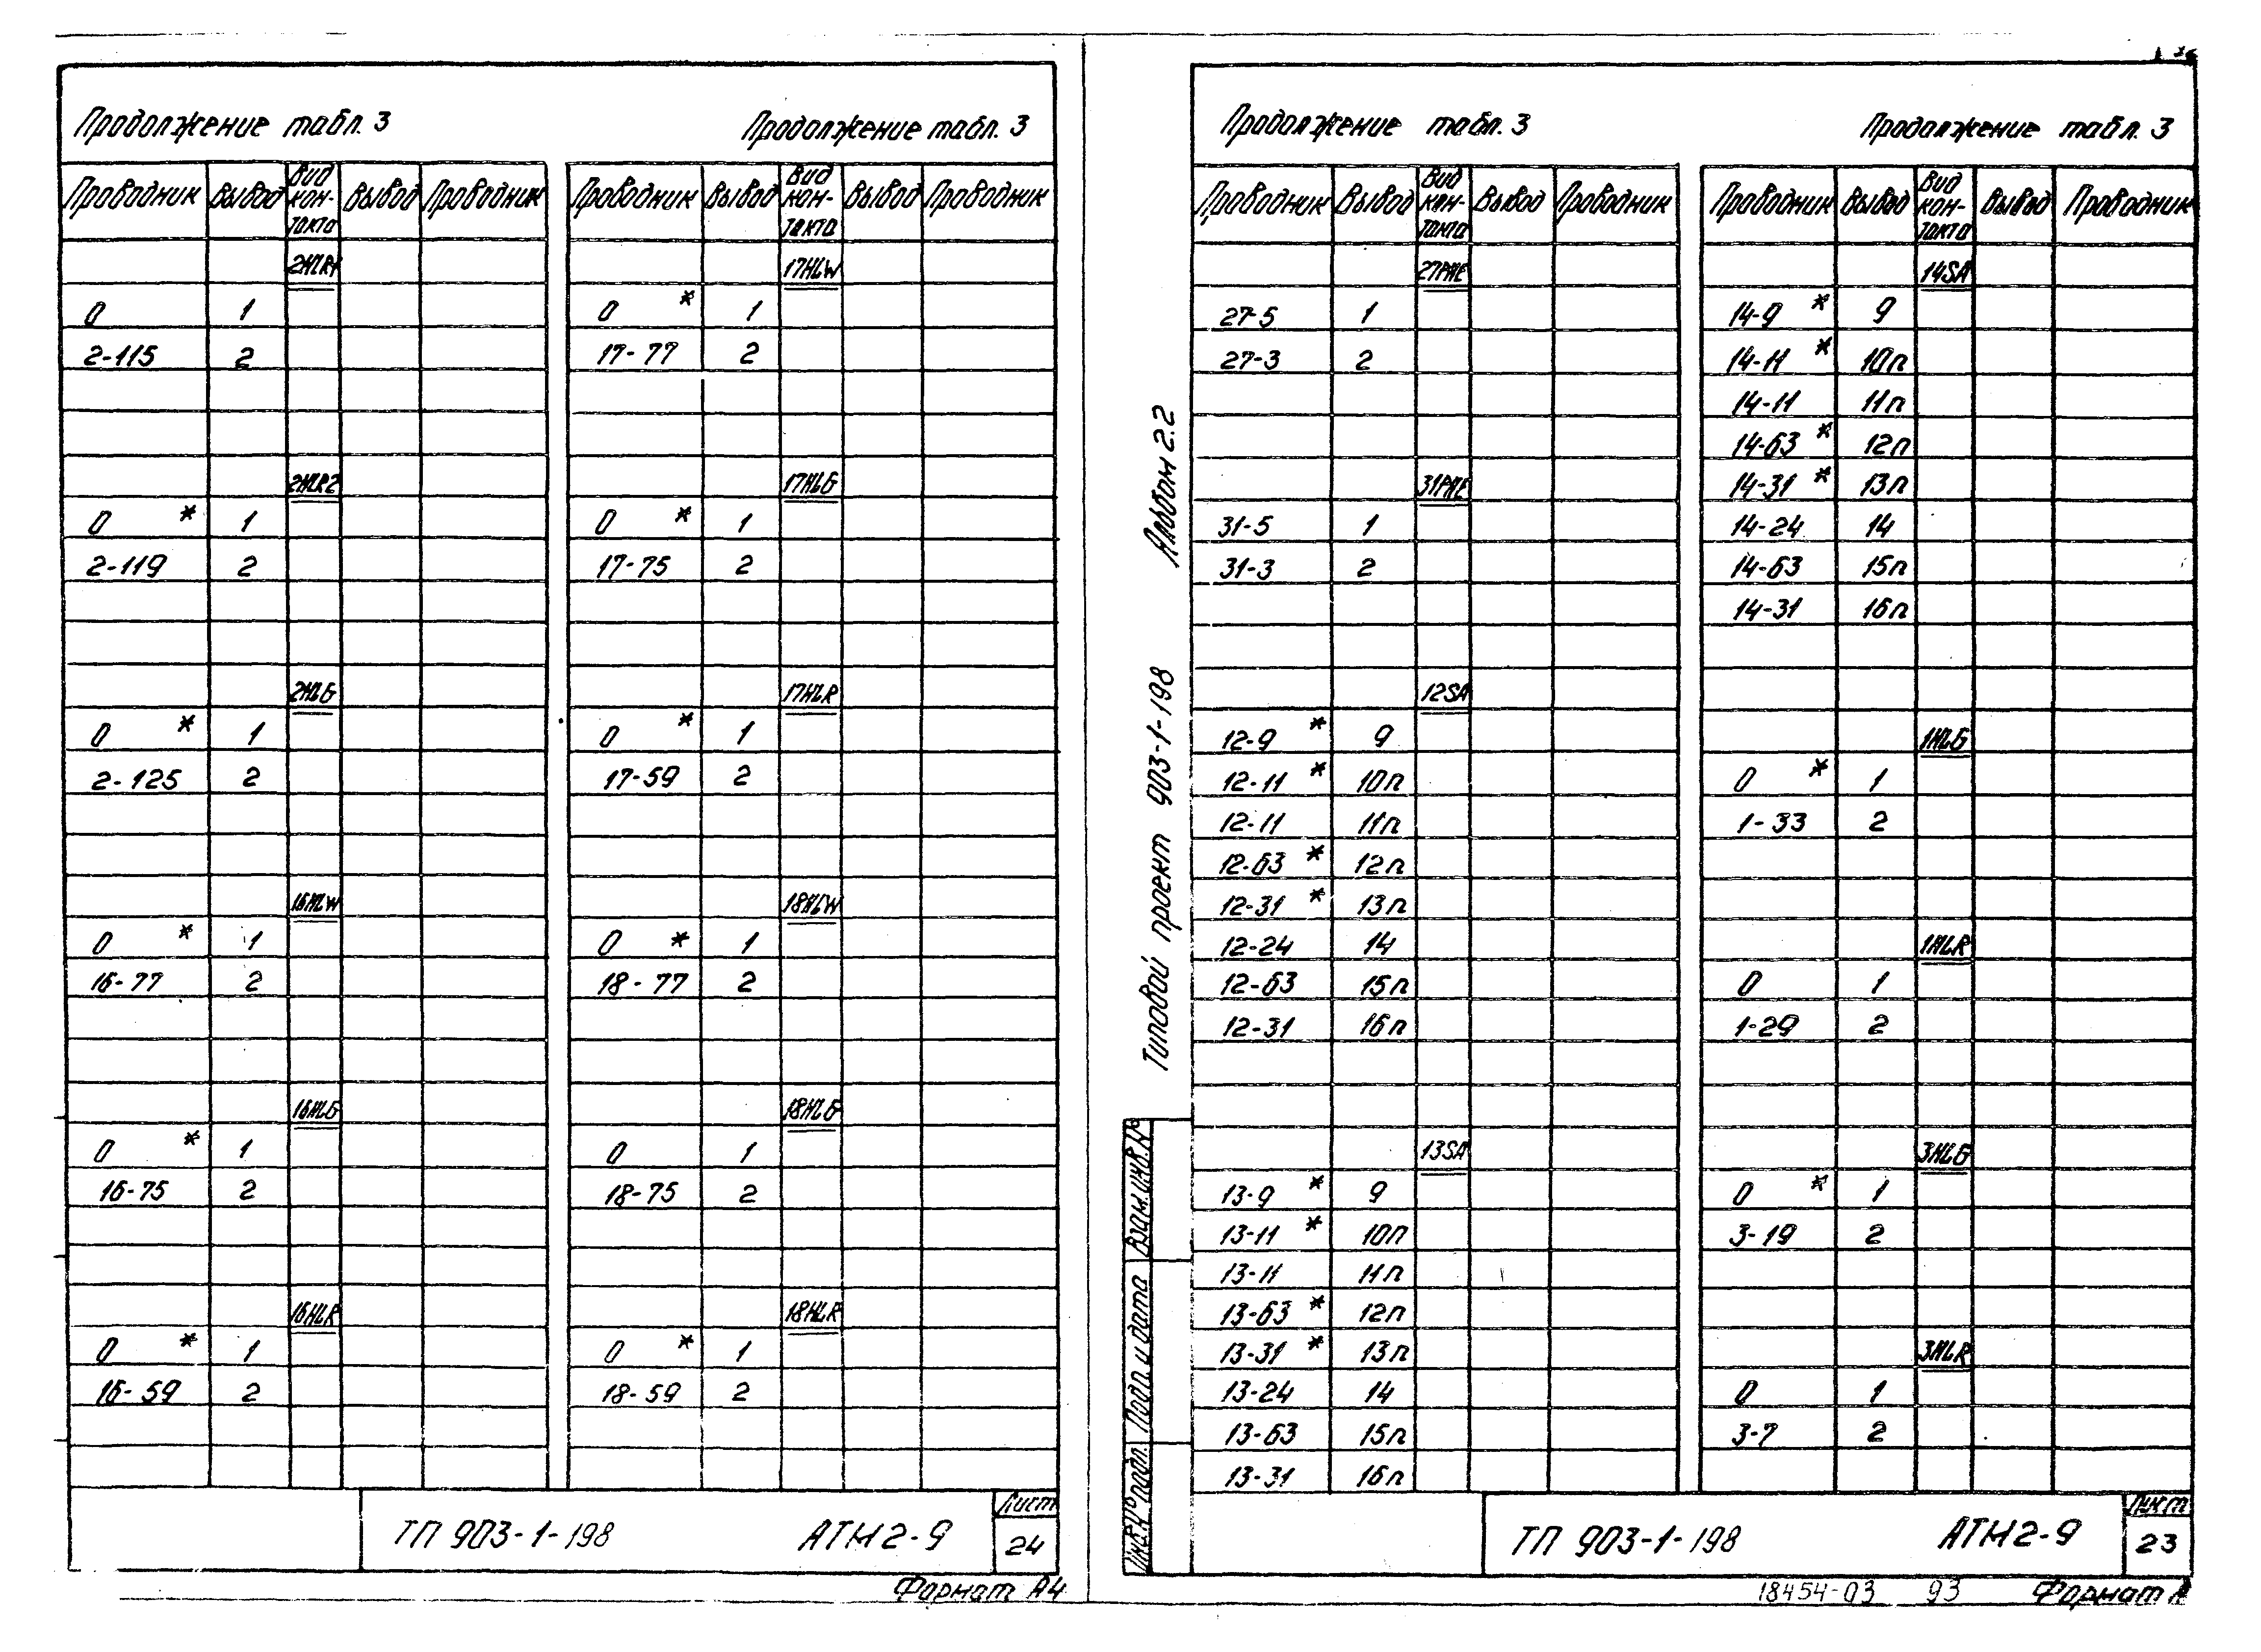 Продолжение табл. 3
Продолжение табл. 3
Проводник Вывод Вид кон- такта Вывод Проводник
2HLR1
0 1
2-115 2
2HLR2
0 * 1
2-119 2
2HLG
0 * 1
2-125 2
16HLW
0 * 1
16-77 2
16HLG
0 * 1
16-75 2
16HLR
0 * 1
16-59 2
Проводник Вывод Вид кон- такта Вывод Проводник
17HLW
0 * 1
17-77 2
17HLG
0 * 1
17-75 2
17HLR
0 * 1
17-59 2
18HLW
0 * 1
18-77 2
18HLG
0 1
18-75 2
18HLR
0 * 1
18-59 2
ТП 903-1-198 АТМ2-9
Лист
24
Формат А4
Продолжение табл. 3
Продолжение табл. 3
Проводник Вывод Вид кон- такта Вывод Проводник
27РНЕ
27-5 1
27-3 2
31РНЕ
31-5 1
31-3 2
12SA
12-9 * 9
12-11 * 10п
12-11 11п
12-63 * 12п
12-31 * 13п
12-24 14
12-63 15п
12-31 16п
13SA
13-9 * 9
13-11 * 10п
13-11 11п
13-63 * 12п
13-31 * 13п
13-24 14
13-63 15п
13-31 16п
Проводник Вывод Вид кон- такта Вывод Проводник
14SA
14-9 * 9
14-11 * 10п
14-11 11п
14-63 * 12п
14-31 * 13п
14-24 14
14-63 15п
14-31 16п
1HLG
0 * 1
1-33 2
1HLR
0 1
1-29 2
3HLG
0 * 1
3-19 2
3HLR
0 1
3-7 2
Типовой проект 903-1-198 Альбом 2.2
Инв.№ подл. Подп. и дата Взам.инв.№
ТП 903-1-198 АТМ2-9
Лист
23
18454-03 93 Формат